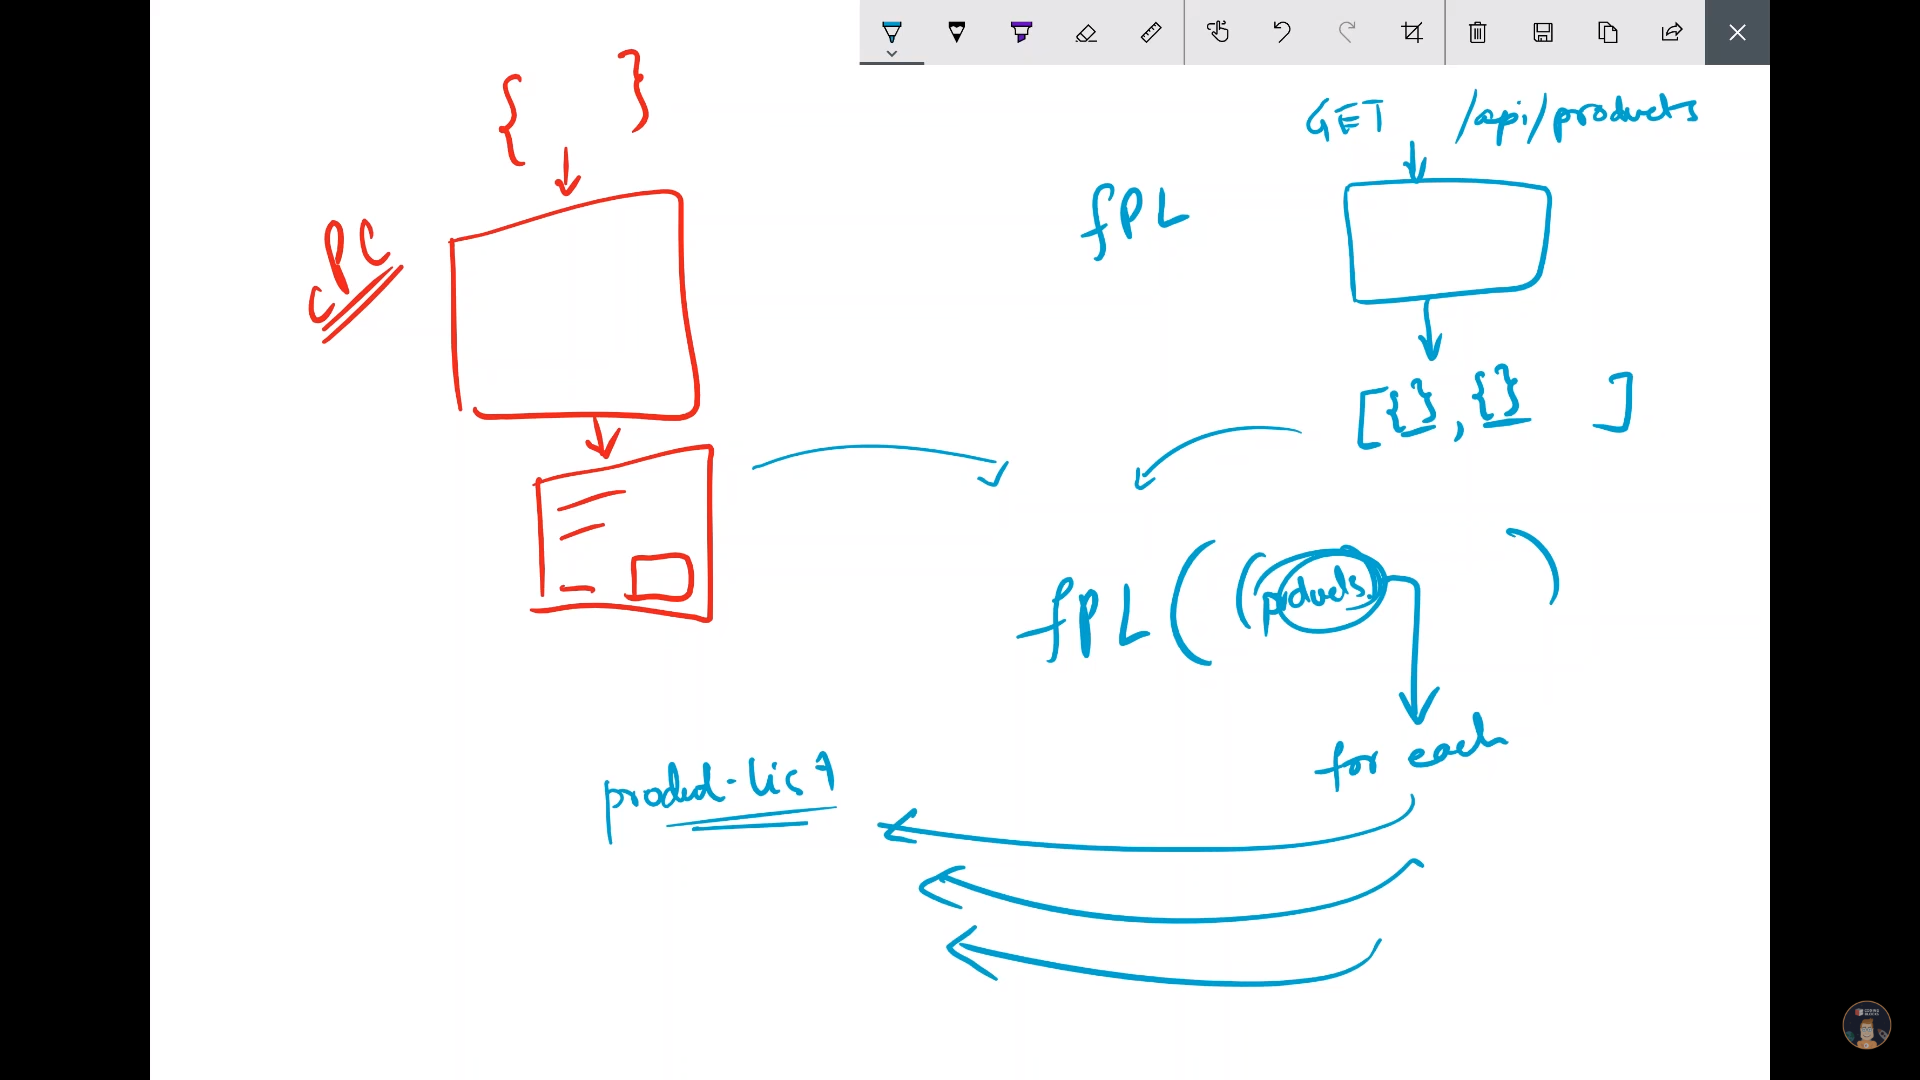 { }
cPC
GET /api/products
fPL
[{}, {} ]
fPL( (products) )
for each
product-list
CODING BLOCKS